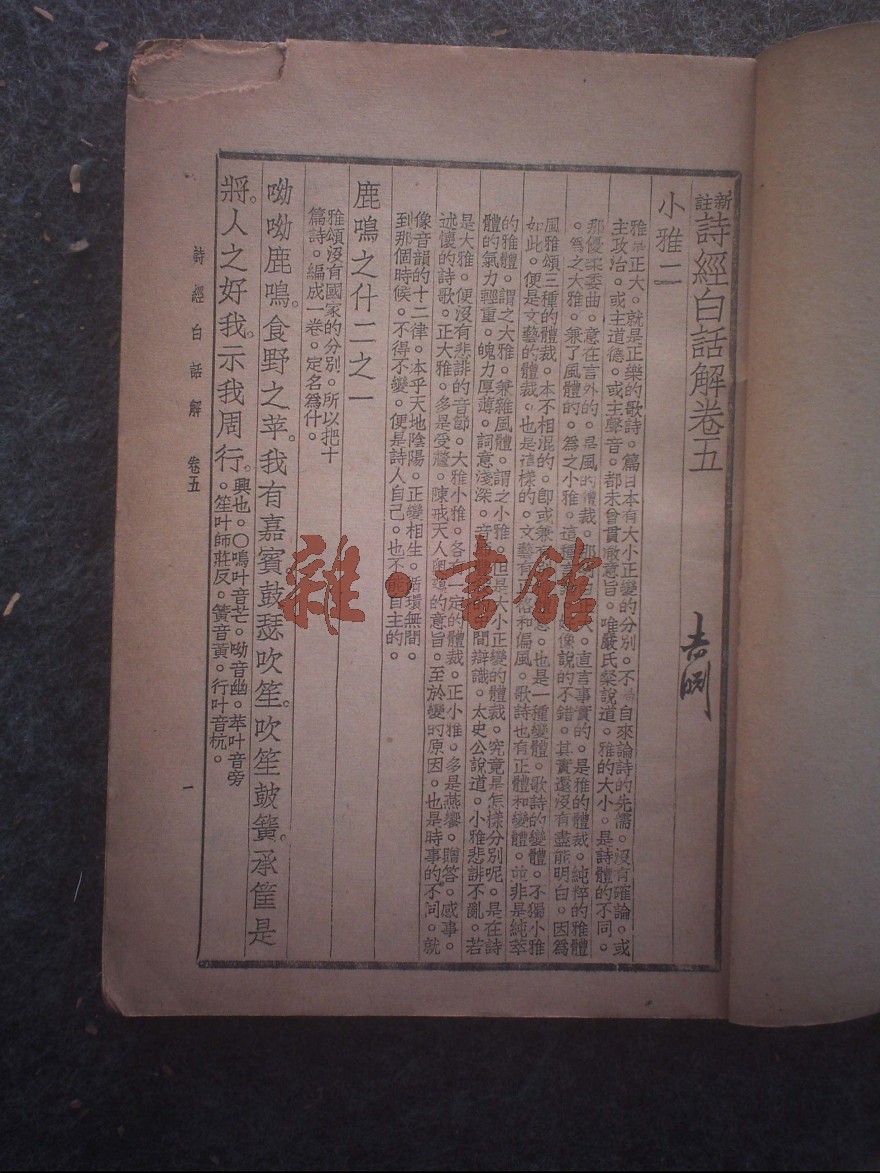 新註詩經白話解卷五
小雅二
雅 正大。就是正樂的歌詩。篇目本有大小正變的分別。不 自來論詩的先儒。沒有確論。或
主政治。或主道德。或主聲音。都未曾貫徹意旨。唯嚴氏粲說道。雅的大小。是詩體的不同。
那優柔委曲。意在言外的。是風的體裁。 直言事實的。是雅的體裁。純粹的雅體
。爲之大雅。兼了風體的。爲之小雅。這種 像說的不錯。其實還沒有盡能明白。因爲
風雅頌三種的體裁。本不相混的。卽或兼有 也是一種變體。歌詩的變體。不獨小雅
如此。便是文藝的體裁。也是這樣的。文藝有 和偏風。歌詩也有正體和變體。並非是純萃
的雅體。謂之大雅。兼雜風體。謂之小雅。但是大小正變的體裁。究竟是怎樣分別呢。是在詩
體的氣力輕重。魄力厚薄。詞意淺深。音 問辯識。太史公說道。小雅悲誹不亂。若
是大雅。便沒有悲誹的音節。大雅小雅。各有一定的體裁。正小雅。多是燕饗。贈答。感事。
述懷的詩歌。正大雅。多是受釐。陳戒天人奧蘊的意旨。至於變的原因。也是時事的不同。就
像音韻的十二律。本乎天地陰陽。正變相生。循環無間。
到那個時候。不得不變。便是詩人自己。也不能自主的。
鹿鳴之什二之一
雅頌沒有國家的分別。所以把十
篇詩。編成一卷。定名爲什。
呦呦鹿鳴。食野之苹。我有嘉賓。鼓瑟吹笙。吹笙鼓簧。承筐是
將。人之好我。示我周行。興也。○鳴叶音芒。呦音幽。苹叶音旁
。笙叶師莊反。簧音黃。行叶音杭。
詩經白話解 卷五 一
雜·書館